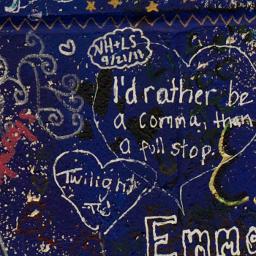 NH+LS
9/21/11
I'd rather be
a comma, than
a full stop.
Twilight
Emma